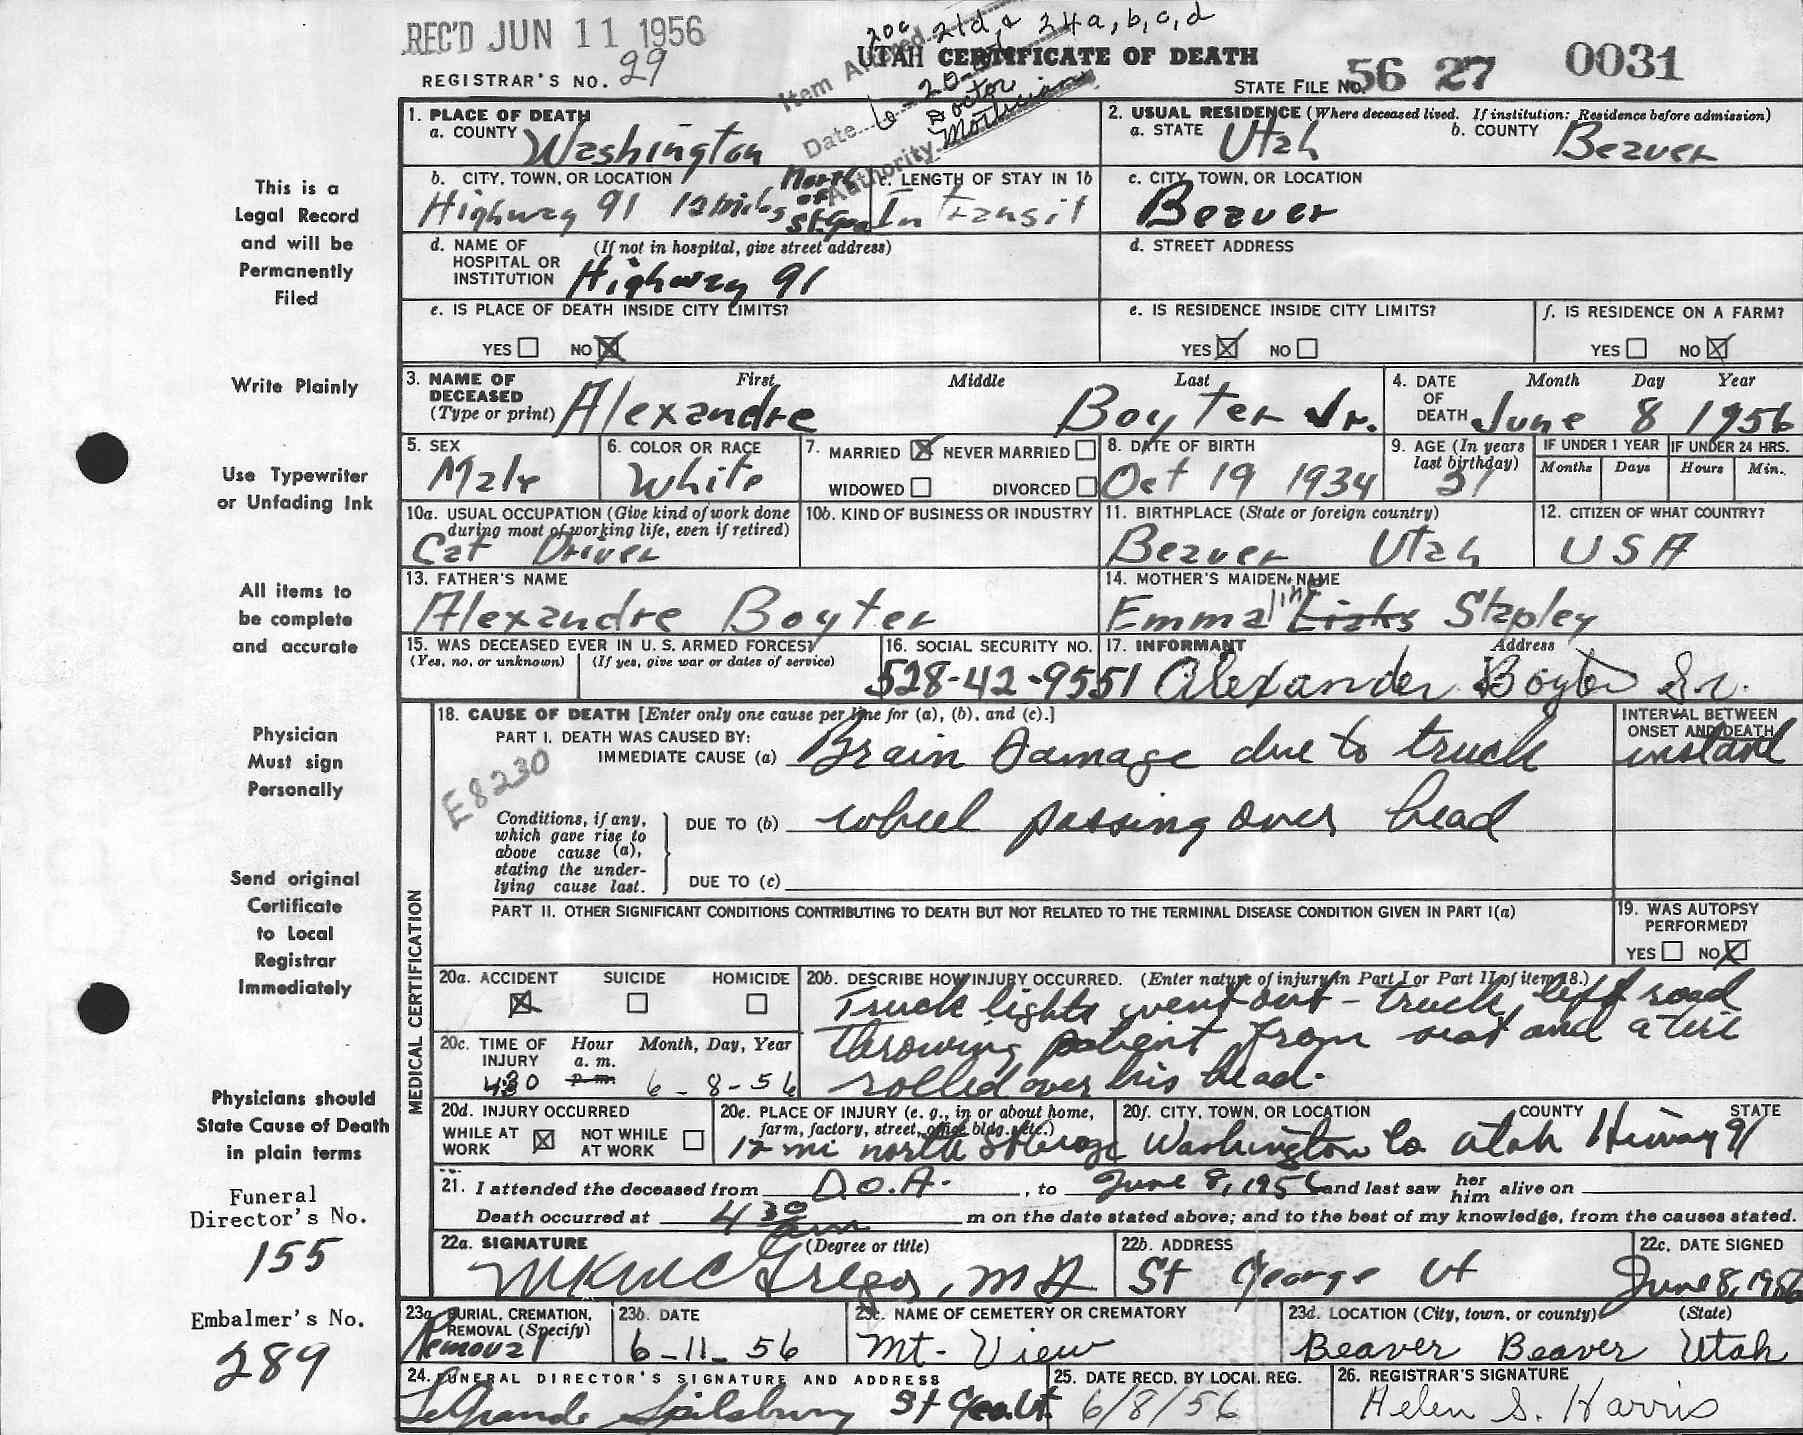 REC'D JUN 11 1956
20c 21d, & 24a, b, c, d
UTAH CERTIFICATE OF DEATH
REGISTRAR'S NO. 29
STATE FILE NO. 56 27 0031
Item Altered
Date 6-20-
Doctor
Authority Mortician
This is a
Legal Record
and will be
Permanently
Filed
Write Plainly
Use Typewriter
or Unfading Ink
All items to
be complete
and accurate
Physician
Must sign
Personally
Send original
Certificate
to Local
Registrar
Immediately
Physicians should
State Cause of Death
in plain terms
Funeral
Director's No.
155
Embalmer's No.
289
1. PLACE OF DEATH
a. COUNTY Washington
2. USUAL RESIDENCE (Where deceased lived. If institution: Residence before admission)
a. STATE Utah b. COUNTY Beaver
b. CITY, TOWN, OR LOCATION
Highway 91 12 miles North of St. Geo
c. LENGTH OF STAY IN 1b
In Transit
c. CITY, TOWN, OR LOCATION
Beaver
d. NAME OF HOSPITAL OR INSTITUTION (If not in hospital, give street address)
Highway 91
d. STREET ADDRESS
e. IS PLACE OF DEATH INSIDE CITY LIMITS?
YES ☐ NO ☒
e. IS RESIDENCE INSIDE CITY LIMITS?
YES ☒ NO ☐
f. IS RESIDENCE ON A FARM?
YES ☐ NO ☒
3. NAME OF DECEASED (Type or print) First Middle Last
Alexandre Boyter Jr.
4. DATE OF DEATH Month Day Year
June 8 1956
5. SEX
Male
6. COLOR OR RACE
White
7. MARRIED ☒ NEVER MARRIED ☐
WIDOWED ☐ DIVORCED ☐
8. DATE OF BIRTH
Oct 19 1934
9. AGE (In years last birthday)
21
IF UNDER 1 YEAR Months Days
IF UNDER 24 HRS. Hours Min.
10a. USUAL OCCUPATION (Give kind of work done during most of working life, even if retired)
Cat Driver
10b. KIND OF BUSINESS OR INDUSTRY
11. BIRTHPLACE (State or foreign country)
Beaver Utah
12. CITIZEN OF WHAT COUNTRY?
USA
13. FATHER'S NAME
Alexandre Boyter
14. MOTHER'S MAIDEN NAME
Emmaline Stapley
15. WAS DECEASED EVER IN U. S. ARMED FORCES?
(Yes, no, or unknown) (If yes, give war or dates of service)
16. SOCIAL SECURITY NO.
528-42-9551
17. INFORMANT Address
Alexander Boyter Sr.
MEDICAL CERTIFICATION
18. CAUSE OF DEATH [Enter only one cause per line for (a), (b), and (c).]
PART I. DEATH WAS CAUSED BY:
IMMEDIATE CAUSE (a) Brain Damage due to truck
INTERVAL BETWEEN ONSET AND DEATH
instant
E8230
Conditions, if any, which gave rise to above cause (a), stating the underlying cause last.
DUE TO (b) wheel passing over head
DUE TO (c)
PART II. OTHER SIGNIFICANT CONDITIONS CONTRIBUTING TO DEATH BUT NOT RELATED TO THE TERMINAL DISEASE CONDITION GIVEN IN PART I(a)
19. WAS AUTOPSY PERFORMED?
YES ☐ NO ☒
20a. ACCIDENT ☒ SUICIDE ☐ HOMICIDE ☐
20b. DESCRIBE HOW INJURY OCCURRED. (Enter nature of injury in Part I or Part II of item 18.)
Truck lights went out - truck left road
throwing patient from seat and a tire
rolled over his head.
20c. TIME OF INJURY Hour a. m. p. m. Month, Day, Year
4:30 6-8-56
20d. INJURY OCCURRED
WHILE AT WORK ☒ NOT WHILE AT WORK ☐
20e. PLACE OF INJURY (e. g., in or about home, farm, factory, street, office bldg., etc.)
12 mi north St George
20f. CITY, TOWN, OR LOCATION COUNTY STATE
Washington Co Utah Hiway 91
21. I attended the deceased from D.O.A. , to June 8, 1956 and last saw her him alive on
Death occurred at 4 30 am m on the date stated above; and to the best of my knowledge, from the causes stated.
22a. SIGNATURE (Degree or title)
M K McGregor, MD
22b. ADDRESS
St George Ut
22c. DATE SIGNED
June 8, 1956
23a. BURIAL, CREMATION, REMOVAL (Specify)
Removal
23b. DATE
6-11-56
23c. NAME OF CEMETERY OR CREMATORY
Mt. View
23d. LOCATION (City, town, or county) (State)
Beaver Beaver Utah
24. FUNERAL DIRECTOR'S SIGNATURE AND ADDRESS
LeGrande Spilsbury St Geo Ut.
25. DATE RECD. BY LOCAL REG.
6/8/56
26. REGISTRAR'S SIGNATURE
Helen S. Harris